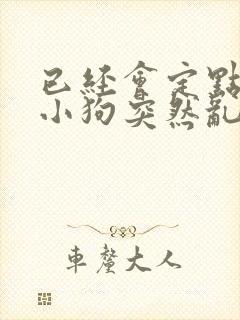 已經會定點
小狗突然亂
車釐大人